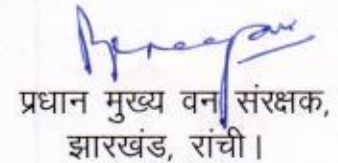 प्रधान मुख्य वन संरक्षक,
झारखंड, रांची।